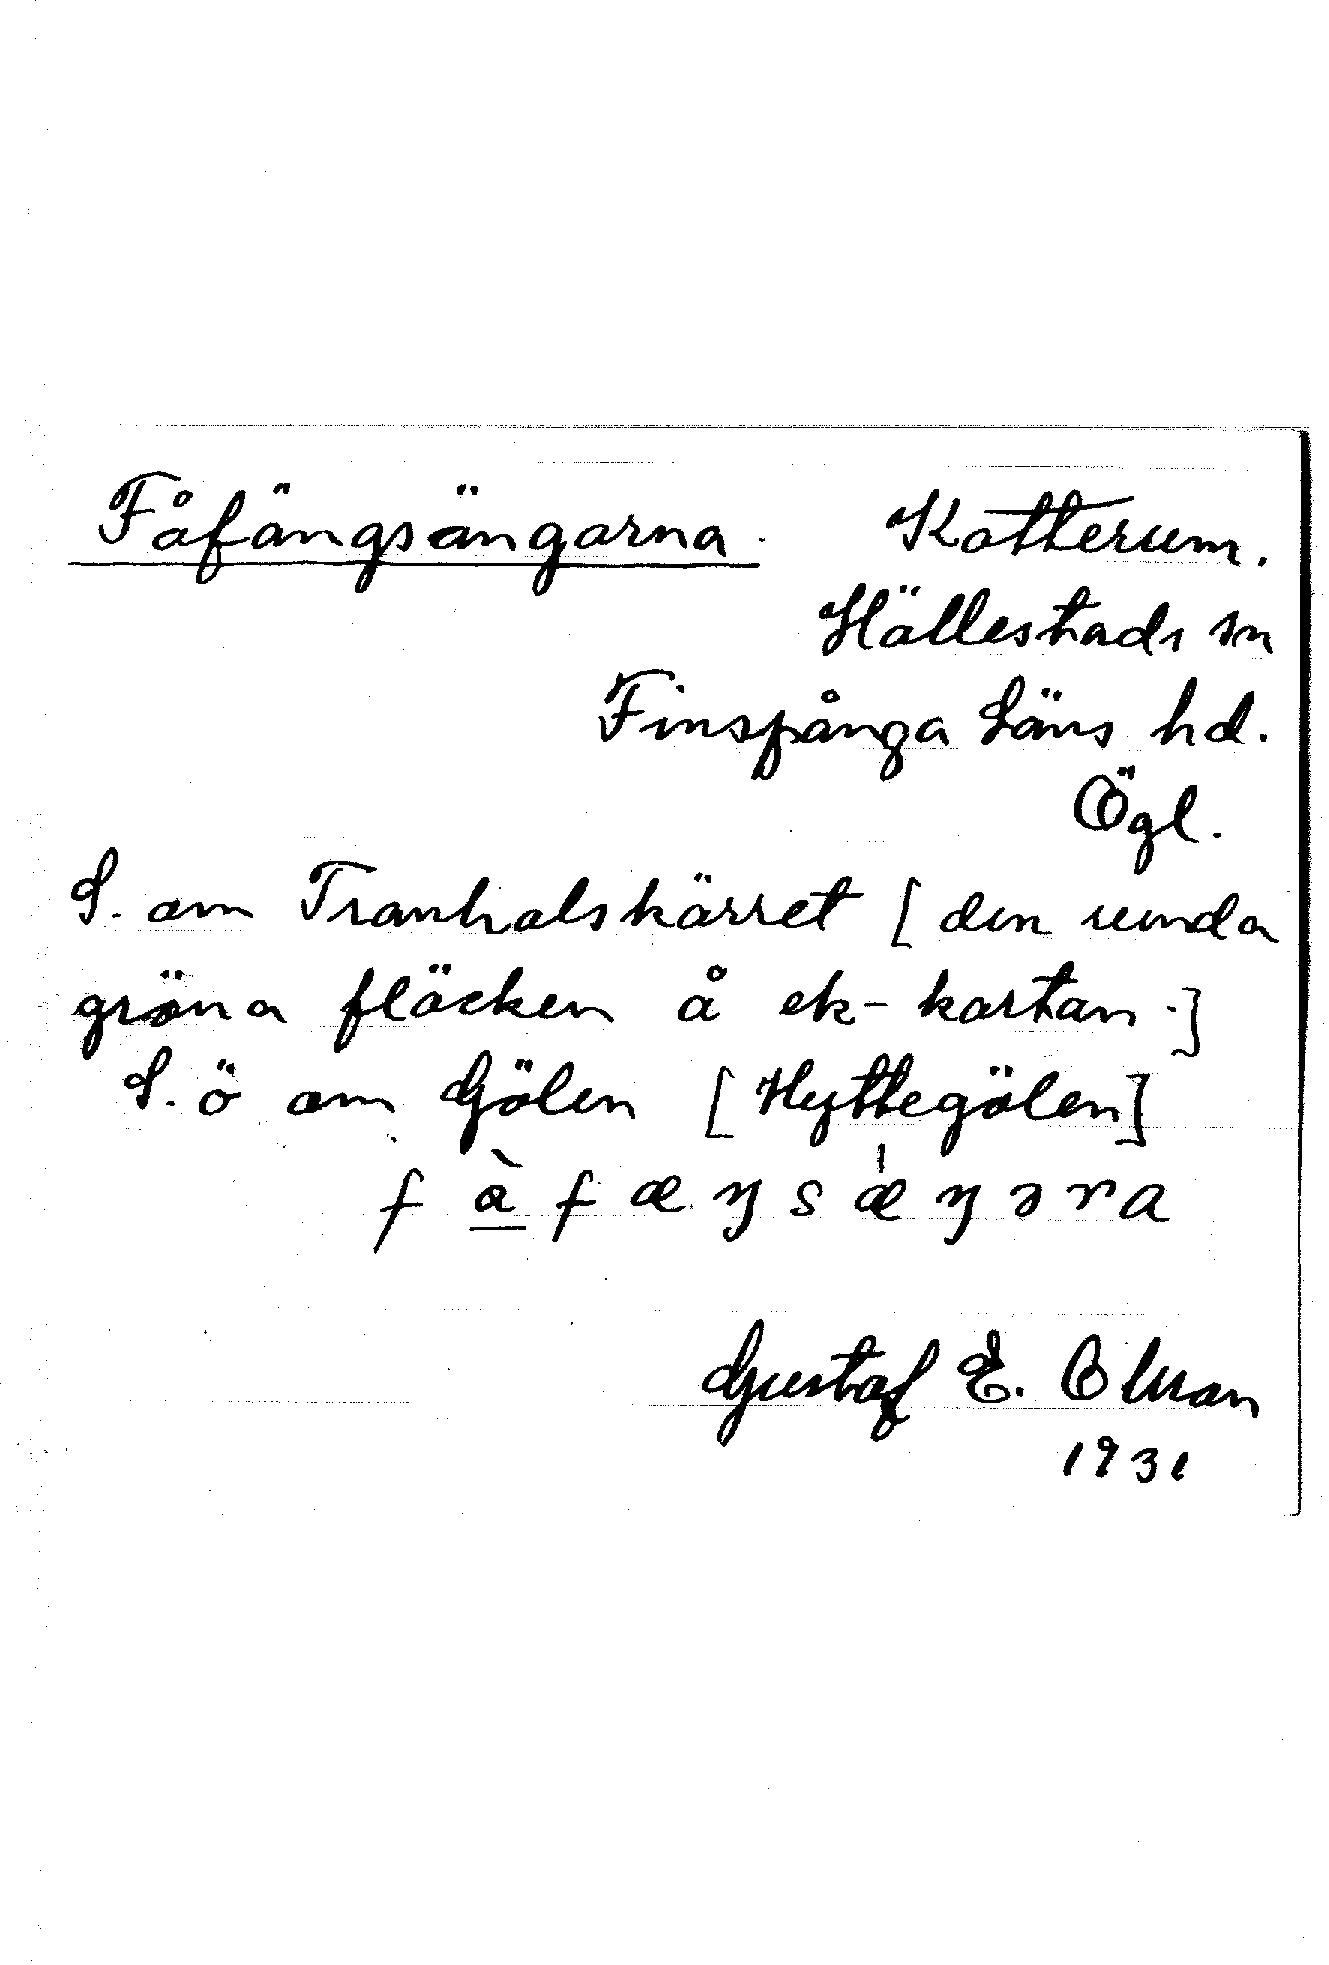 Fåfängsängarna. Kotterum.
Hällestads sn
Finspånga Läns hd.
Ögl.
S. om Tranhalskärret [den runda
gröna fläcken å ek-kartan.]
S. ö om Gölen [Hyttegölen]
fàfæŋsæ̍ŋəra
Gustaf E. Olsson
1931